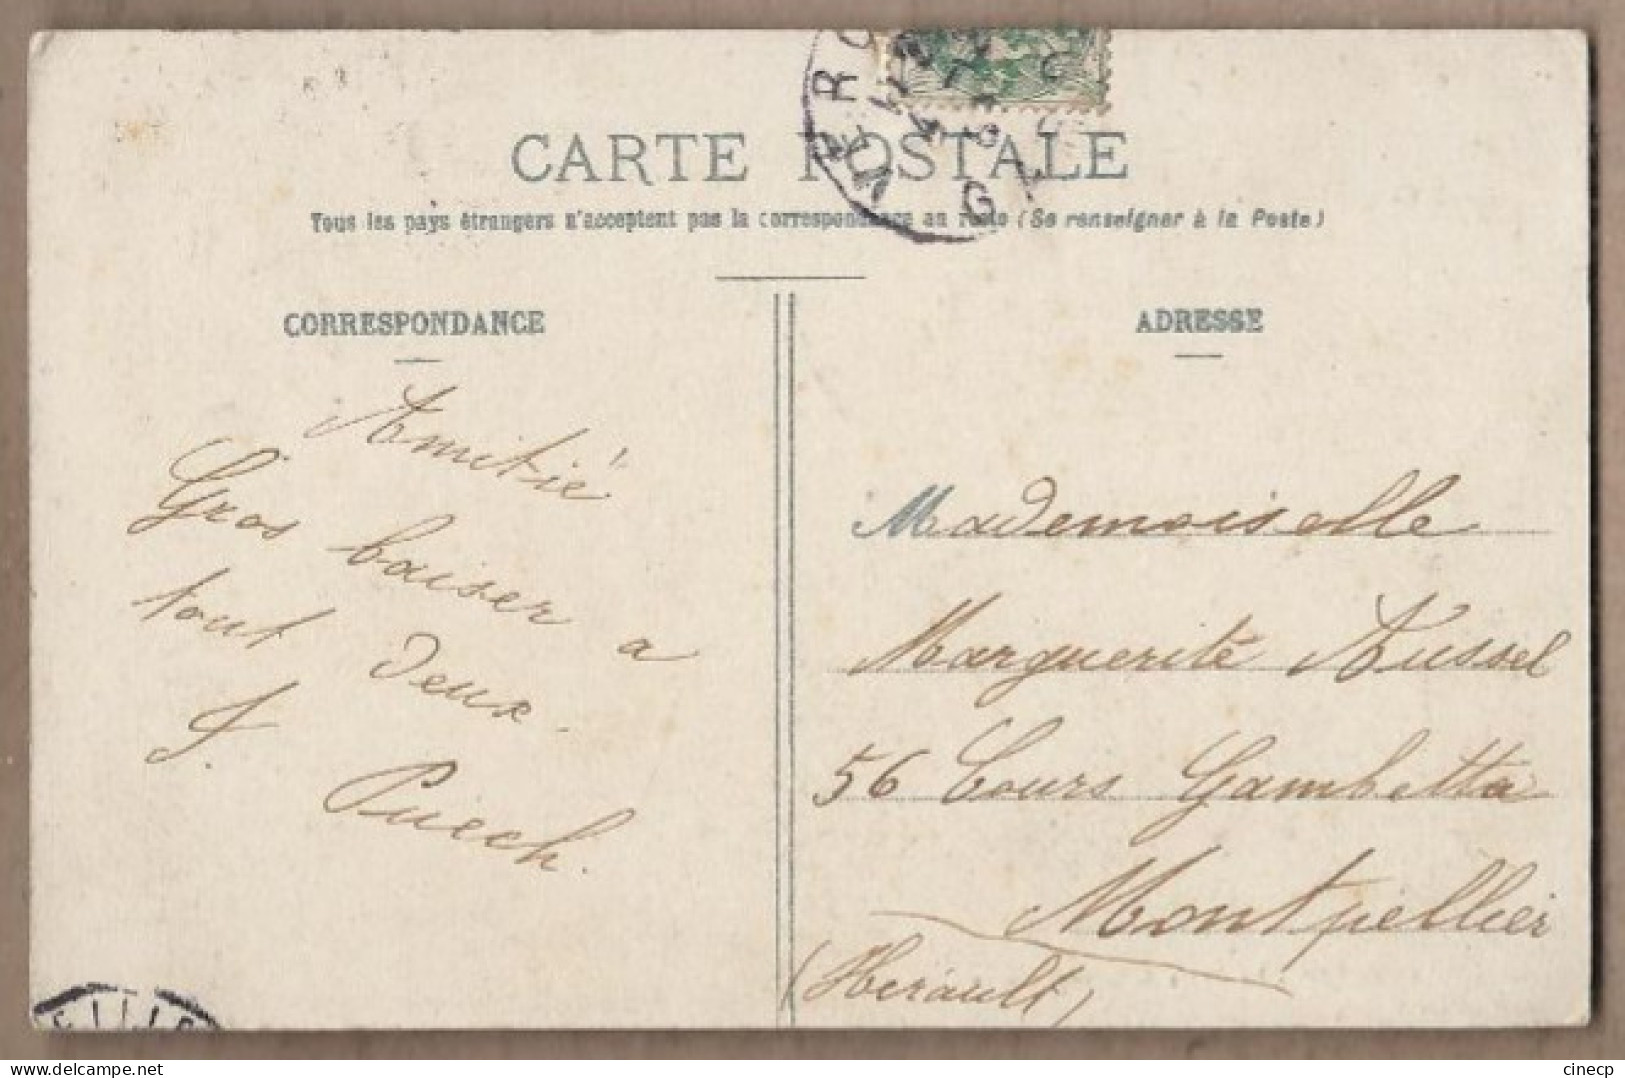 CARTE POSTALE
Tous les pays étrangers n'acceptent pas la correspondance au recto (Se renseigner à la Poste)
CORRESPONDANCE
Amitié
Gros baiser a
tout deux.
J. Puech.
ADRESSE
Mademoiselle
Marguerité Aussel
56 Cours Gambetta
Montpellier
(Herault)
cinecp